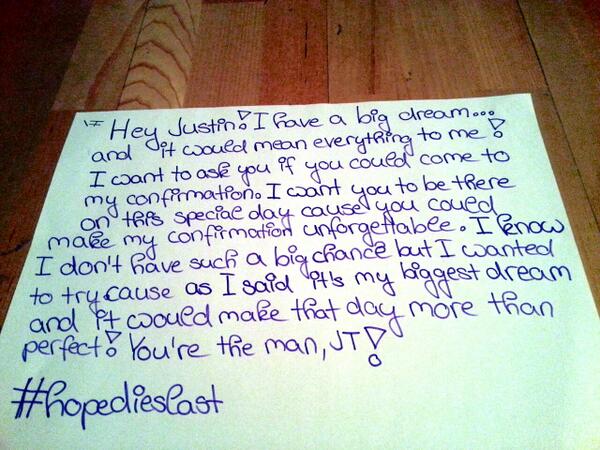 Hey Justin! I have a big dream...
and it would mean everything to me!
I want to ask you if you could come to
my confirmation. I want you to be there
on this special day cause you could
make my confirmation unforgettable. I know
I don't have such a big chance but I wanted
to try cause as I said it's my biggest dream
and it would make that day more than
perfect! You're the man, JT!
#hopedieslast